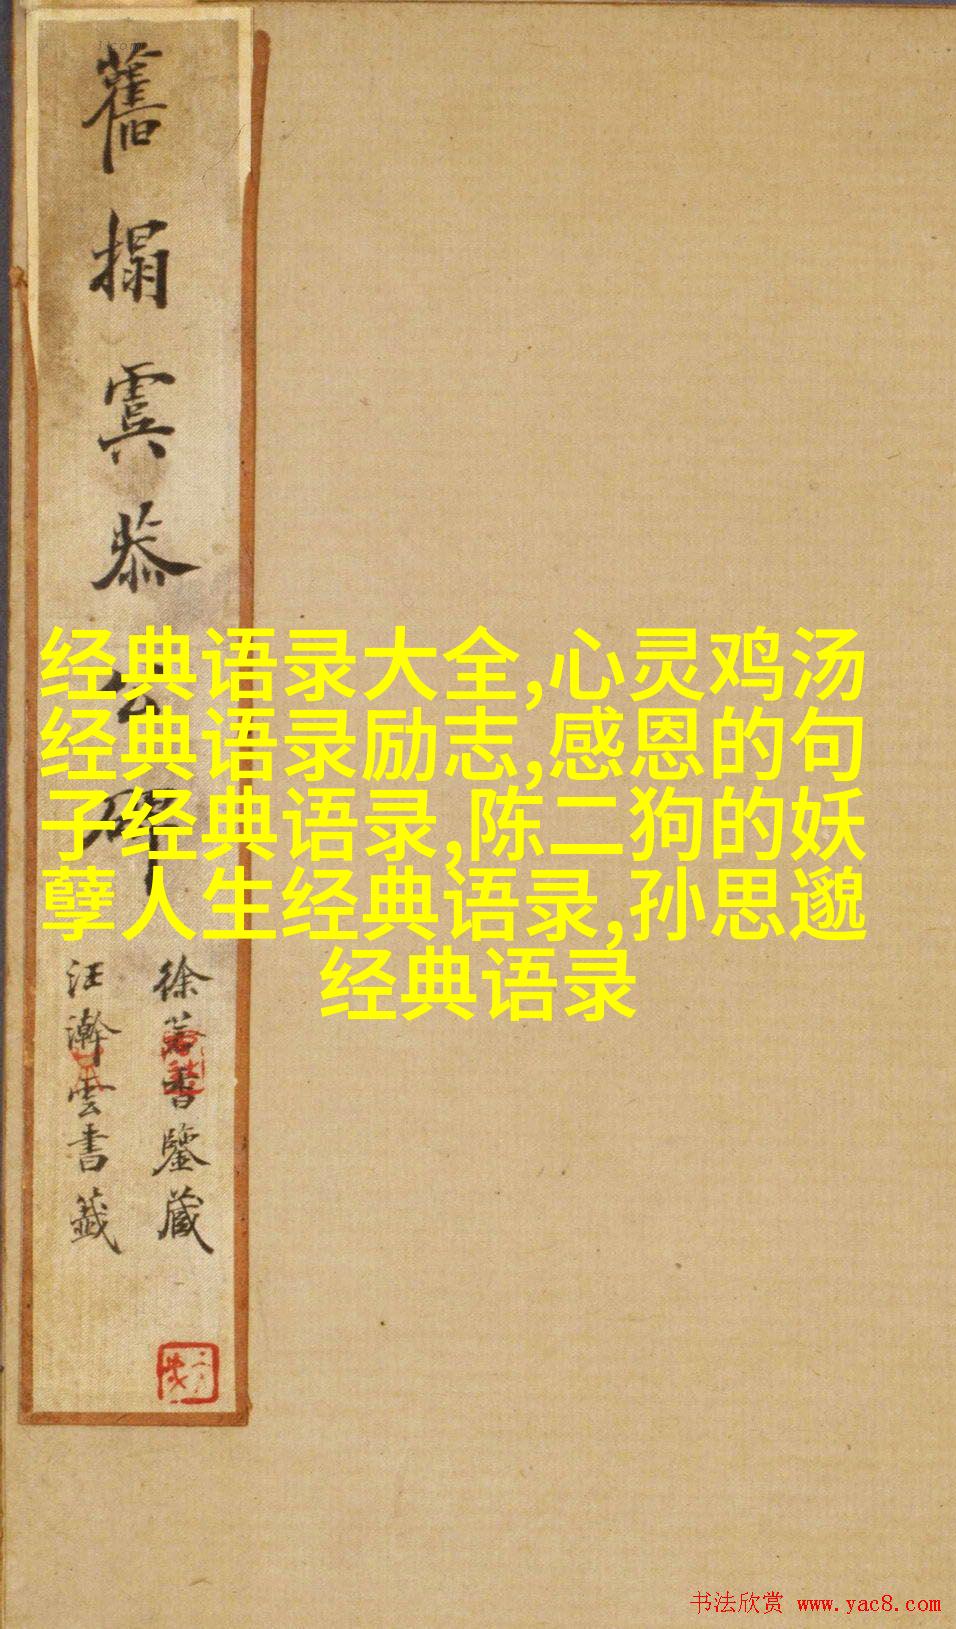 舊搨虞恭公碑
徐若書鑒藏
汪瀚雲書籤
经典语录大全,心灵鸡汤
经典语录励志,感恩的句
子经典语录,陈二狗的妖
孽人生经典语录,孙思邈
经典语录
书法欣赏 www.yac8.com